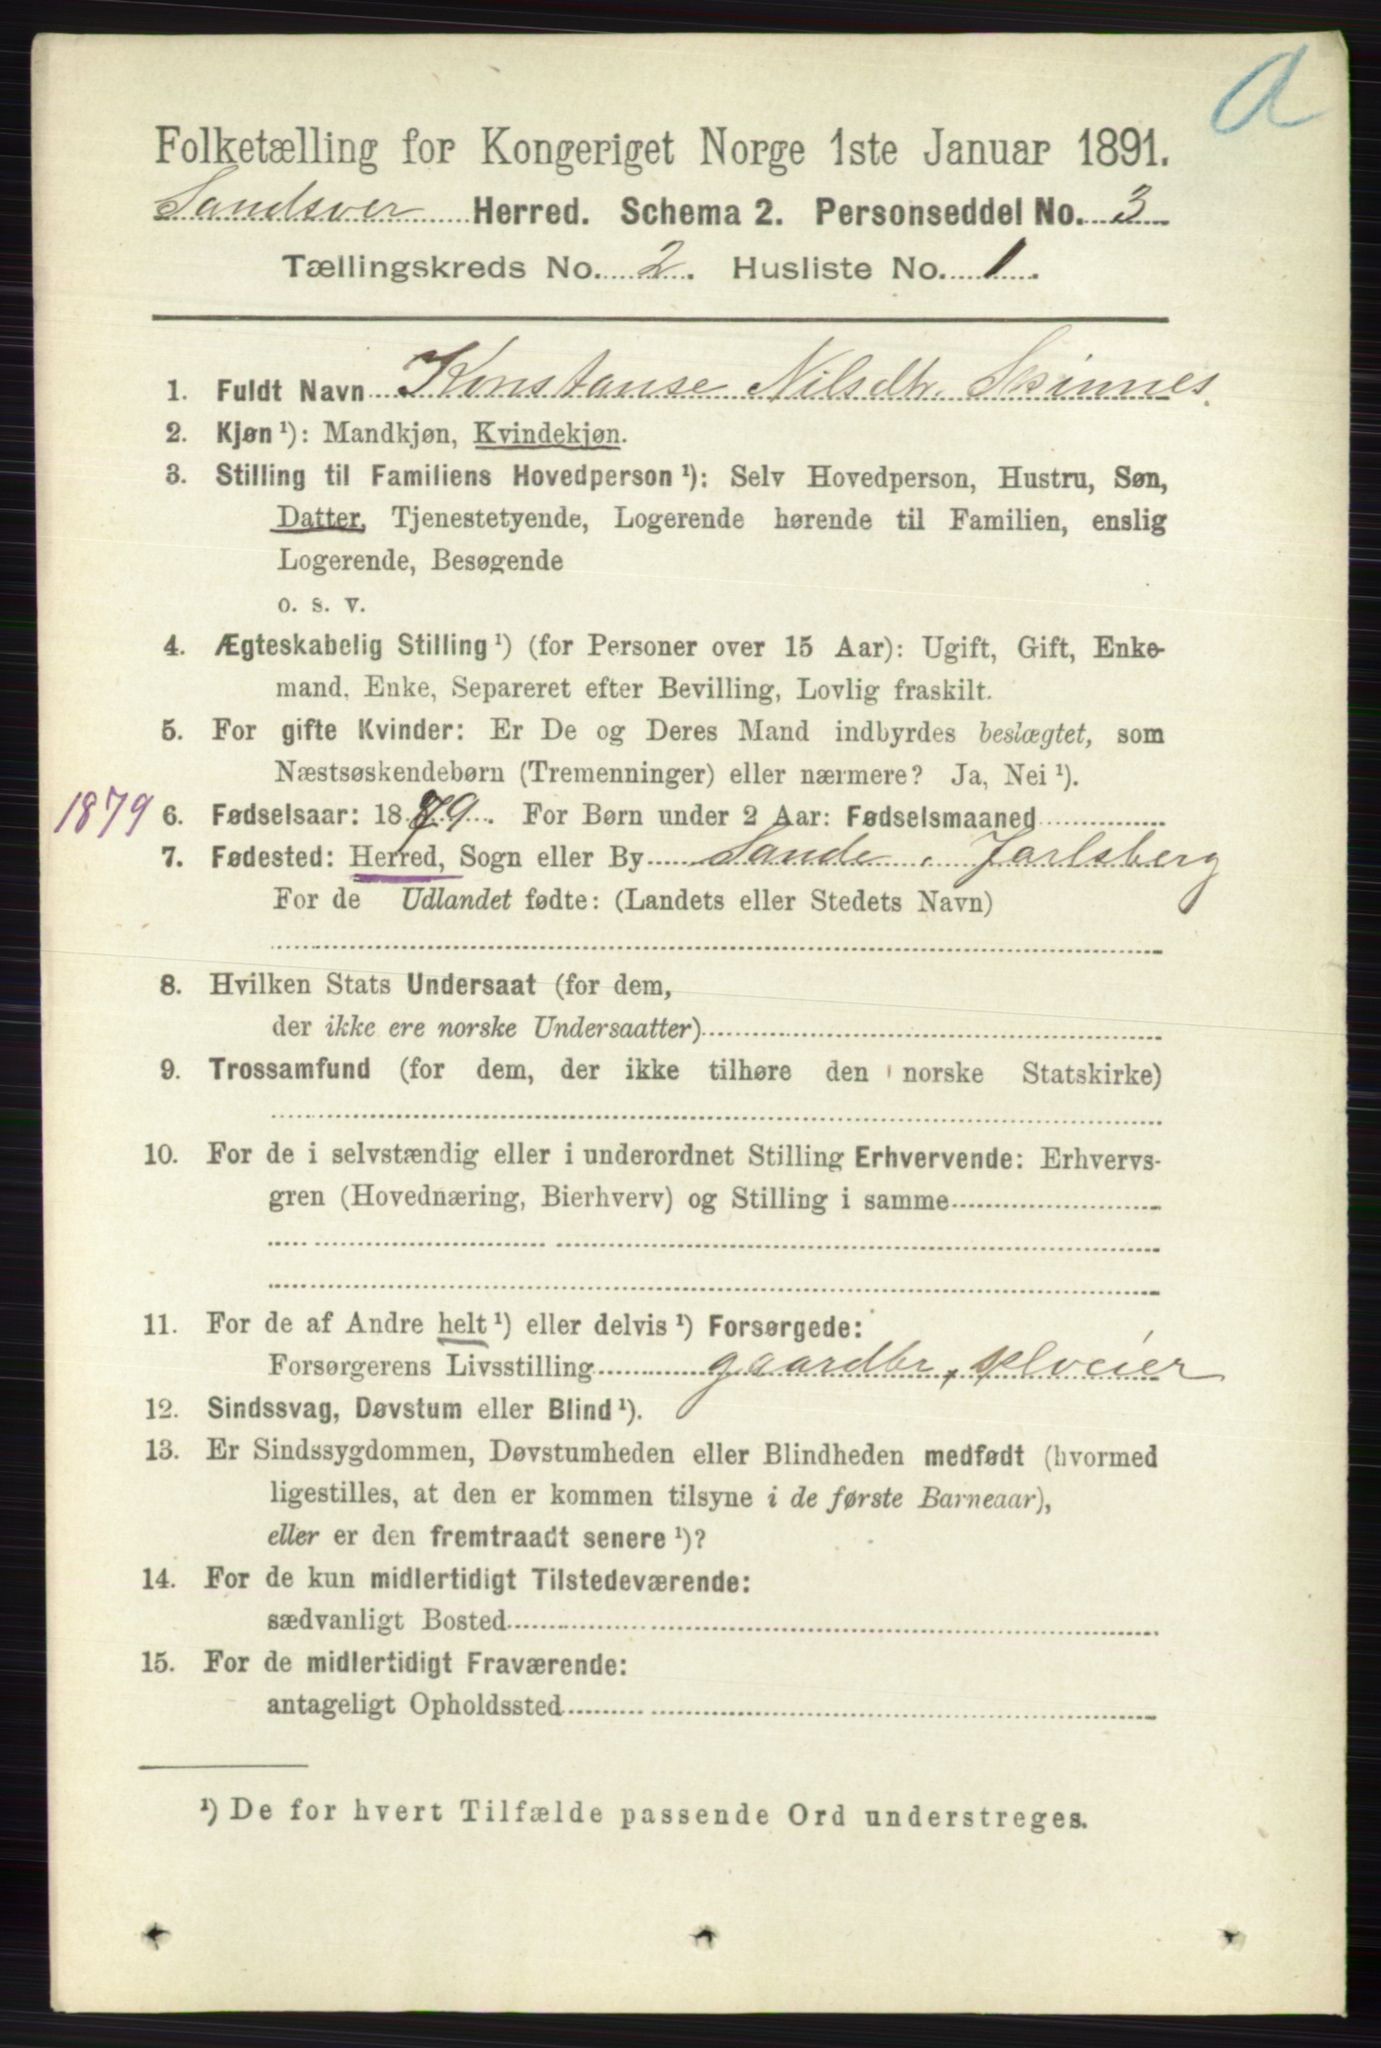 a
Folketælling for Kongeriget Norge 1ste Januar 1891.
Sandsver Herred. Schema 2. Personseddel No. 3
Tællingskreds No. 2. Husliste No. 1.
1. Fuldt Navn Konstanse Nilsdtr. Skinnes.
2. Kjøn ¹): Mandkjøn, Kvindekjøn.
3. Stilling til Familiens Hovedperson ¹): Selv Hovedperson, Hustru, Søn,
Datter, Tjenestetyende, Logerende hørende til Familien, enslig
Logerende, Besøgende
o. s. v.
4. Ægteskabelig Stilling ¹) (for Personer over 15 Aar): Ugift, Gift, Enke-
mand, Enke, Separeret efter Bevilling, Lovlig fraskilt.
5. For gifte Kvinder: Er De og Deres Mand indbyrdes beslægtet, som
Næstsøskendebørn (Tremenninger) eller nærmere? Ja, Nei ¹).
1879 6. Fødselsaar: 1879. For Børn under 2 Aar: Fødselsmaaned
7. Fødested: Herred, Sogn eller By Sande. Jarlsberg
For de Udlandet fødte: (Landets eller Stedets Navn)
8. Hvilken Stats Undersaat (for dem,
der ikke ere norske Undersaatter)
9. Trossamfund (for dem, der ikke tilhøre den norske Statskirke)
10. For de i selvstændig eller i underordnet Stilling Erhvervende: Erhvervs-
gren (Hovednæring, Bierhverv) og Stilling i samme
11. For de af Andre helt ¹) eller delvis ¹) Forsørgede:
Forsørgerens Livsstilling gaardbr, selveier
12. Sindssvag, Døvstum eller Blind ¹).
13. Er Sindssygdommen, Døvstumheden eller Blindheden medfødt (hvormed
ligestilles, at den er kommen tilsyne i de første Barneaar),
eller er den fremtraadt senere ¹)?
14. For de kun midlertidigt Tilstedeværende:
sædvanligt Bosted
15. For de midlertidigt Fraværende:
antageligt Opholdssted
¹) De for hvert Tilfælde passende Ord understreges.